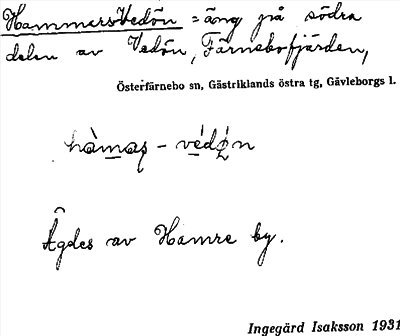 HammersVedön = äng på södra
delen av Vedön, Färnebofjärden,
Österfärnebo sn, Gästriklands östra tg, Gävleborgs l.
Ägdes av Hamre by.
Ingegärd Isaksson 1931